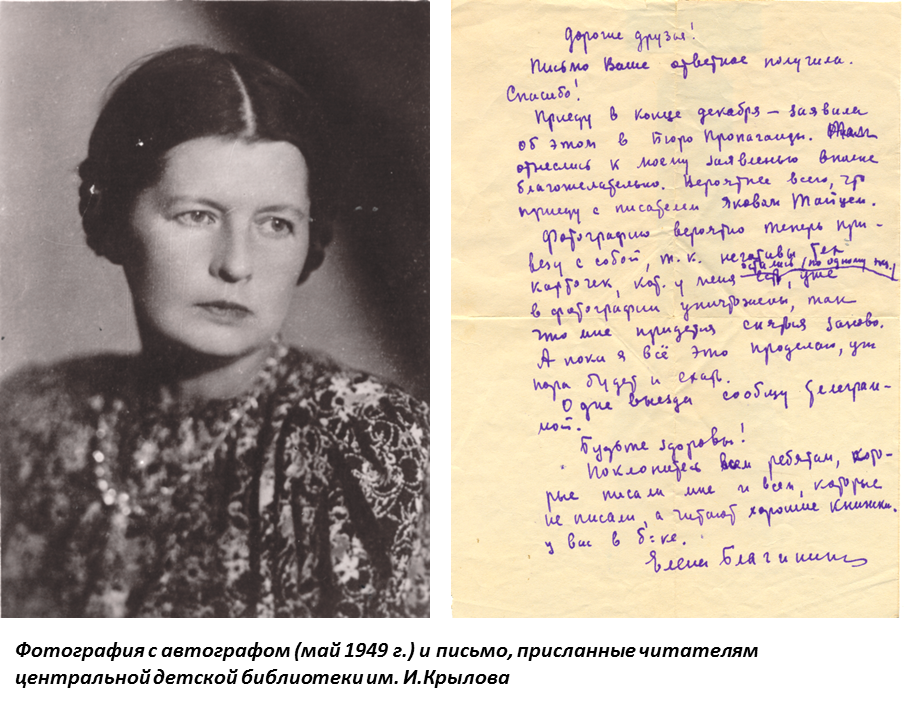 Дорогие друзья!
Письмо Ваше ответное получила.
Спасибо!
Приеду в конце декабря – заявила
об этом в Бюро Пропаганды. Там
отнеслись к моему заявленью вполне
благожелательно. Вероятнее всего, что
приеду с писателем Яковом Тайцем.
Фотографию вероятно теперь при-
везу с собой, т.к. негативы тех
остались (по одному экз.)
карточек, кот. у меня, уже
в фотографии уничтожены, так
что мне придется сняться заново.
А пока я всё это проделаю, уж
пора будет и ехать.
О дне выезда сообщу телеграм-
мой.
Будьте здоровы!
Поклонитесь всем ребятам, кото-
рые писали мне и всем, которые
не писали, а читают хорошие книжки
у вас в б-ке.
Елена Благинина
Фотография с автографом (май 1949 г.) и письмо, присланные читателям
центральной детской библиотеки им. И.Крылова